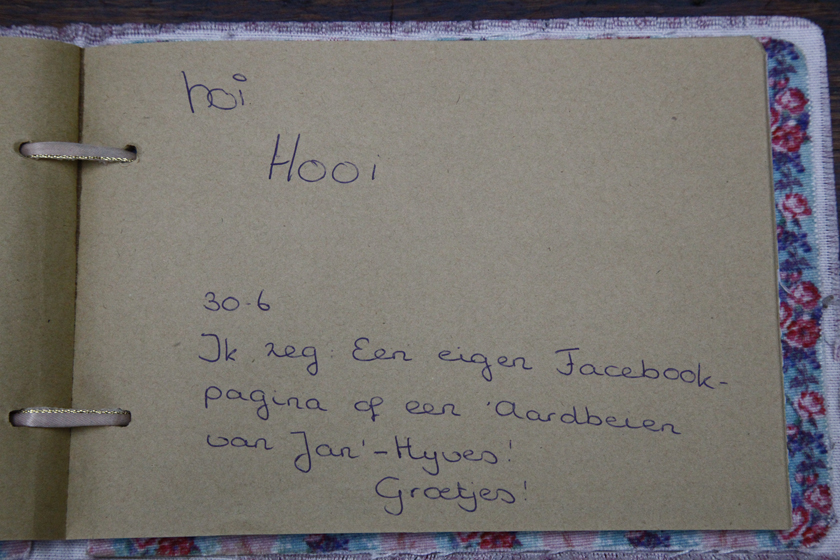 hoi
Hooi
30-6
Ik zeg: Een eigen Facebook-
pagina of een 'Aardbeien
van Jan'-Hyves!
Groetjes!